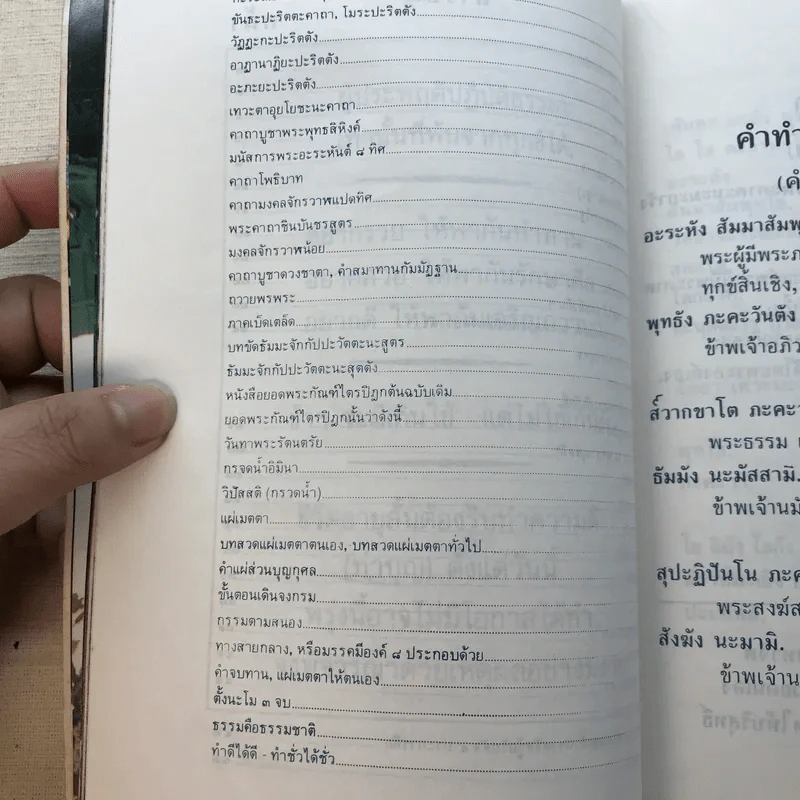 ขันธะปะริตตะคาถา, โมระปะริตตัง
วัฏฏะกะปะริตตัง
อาฏานาฏิยะปะริตตัง
อะภะยะปะริตตัง
เทวะตาอุยโยชะนะคาถา
คาถาบูชาพระพุทธสิหิงค์
มนัสการพระอะระหันต์ ๘ ทิศ
คาถาโพธิบาท
คาถามงคลจักรวาฬแปดทิศ
พระคาถาชินบันชรสูตร
มงคลจักรวาฬน้อย
คาถาบูชาดวงชาตา, คำสมาทานกัมมัฏฐาน
ถวายพรพระ
ภาคเบ็ดเตล็ด
บทขัดธัมมะจักกัปปะวัตตะนะสูตร
ธัมมะจักกัปปะวัตตะนะสุตตัง
หนังสือยอดพระกัณฑ์ไตรปิฎกต้นฉบับเดิม
ยอดพระกัณฑ์ไตรปิฎกนั้นว่าดังนี้
วันทาพระรัตนตรัย
กรุจดน้ำอิมินา
วิปัสสติ (กรวดน้ำ)
แผ่เมตตา
บทสวดแผ่เมตตาตนเอง, บทสวดแผ่เมตตาทั่วไป
คำแผ่ส่วนบุญกุศล
ขั้นตอนเดินจงกรม
กรรมตามสนอง
ทางสายกลาง, หรือมรรคมีองค์ ๘ ประกอบด้วย
คำจบทาน, แผ่เมตตาให้ตนเอง
ตั้งนะโม ๓ จบ
ธรรมคือธรรมชาติ
ทำดีได้ดี - ทำชั่วได้ชั่ว
คำทำ
(คํ
อะระหัง สัมมาสัมพุ
พระผู้มีพระภ
ทุกข์สิ้นเชิง,
พุทธัง ภะคะวันตัง
ข้าพเจ้าอภิว
ส๎วากขาโต ภะคะว
พระธรรม เ
ธัมมัง นะมัสสามิ.
ข้าพเจ้านมั
สุปะฏิปันโน ภะค
พระสงฆ์ส
สังฆัง นะมามิ.
ข้าพเจ้าน